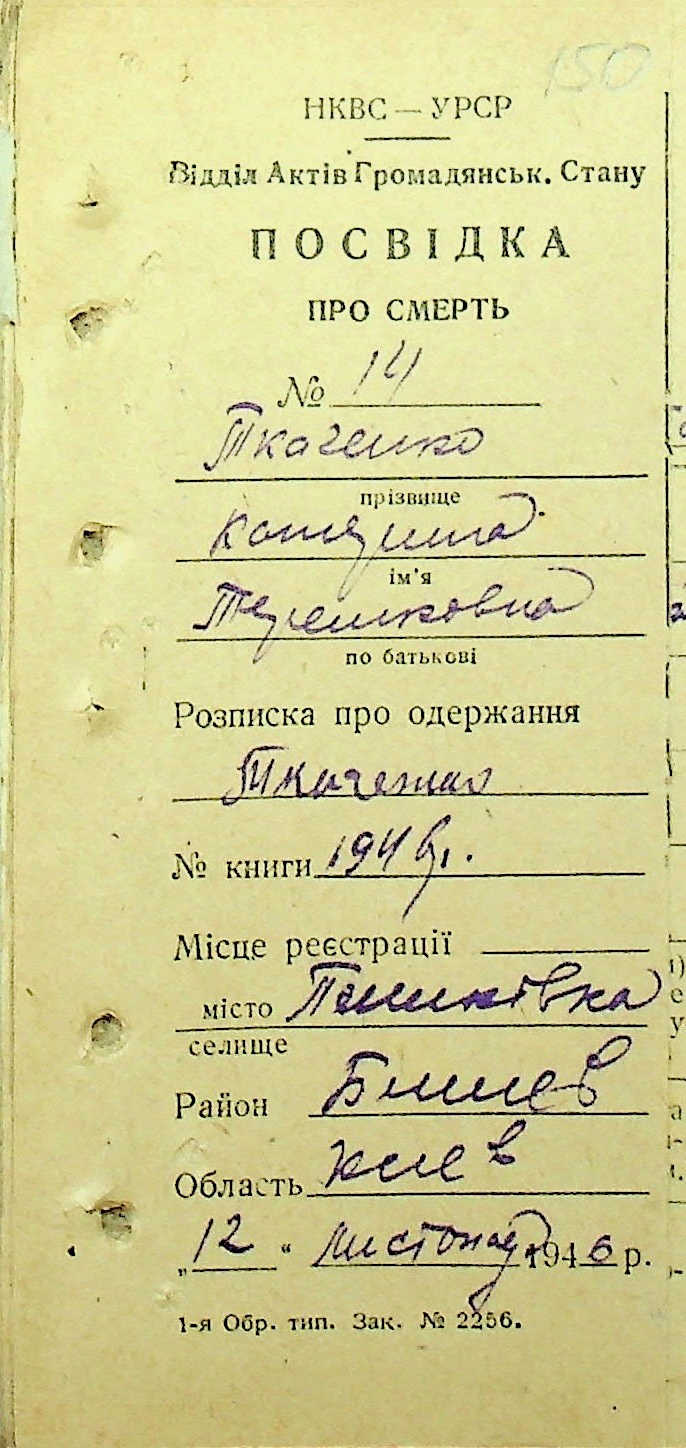 150
НКВС — УРСР
Відділ Актів Громадянськ. Стану
ПОСВІДКА
ПРО СМЕРТЬ
№ 14
Ткаченко
прізвище
Катерина
ім'я
Терешковна
по батькові
Розписка про одержання
Ткаченко
№ книги 1946р.
Місце реєстрації
місто
селище
Район Бишев
Область Киев
„12“ листопад 1946 р.
1-я Обр. тип. Зак. № 2256.